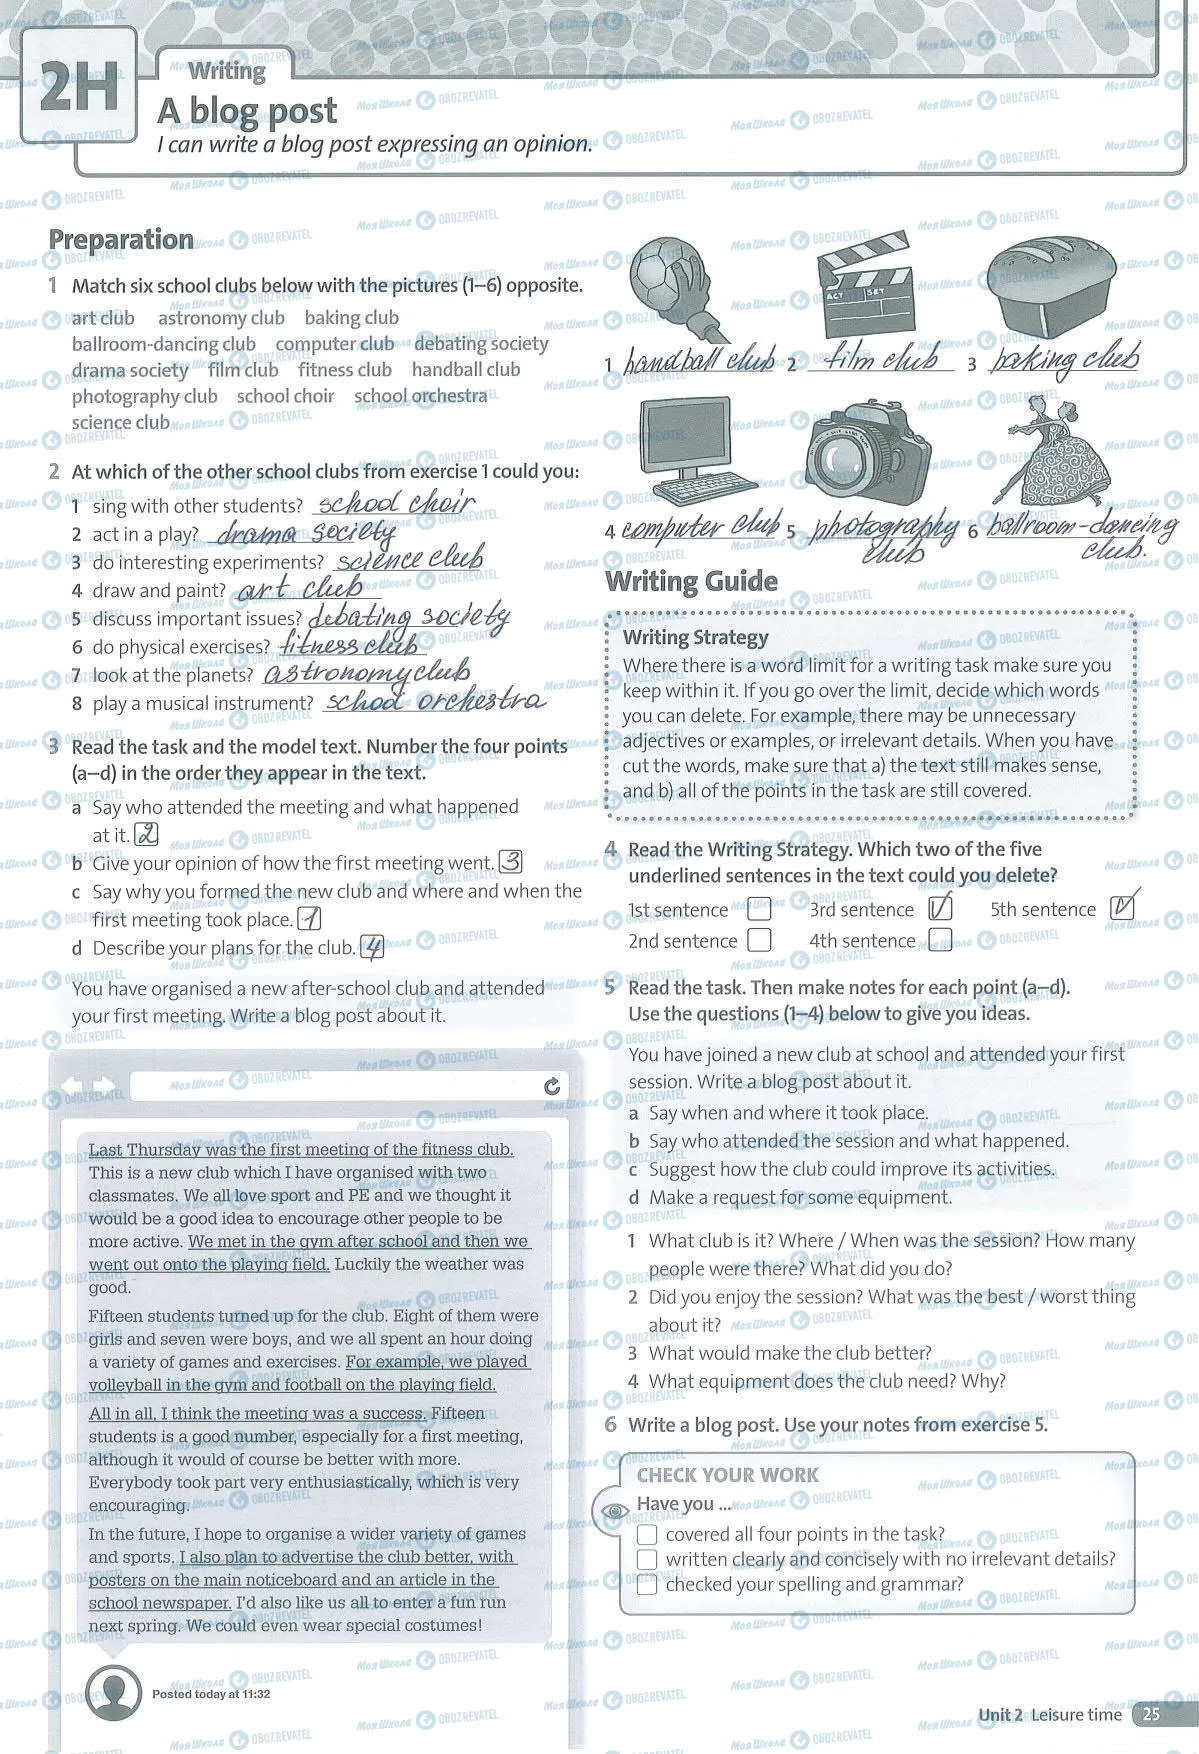 2H
Writing
A blog post
I can write a blog post expressing an opinion.
Preparation
1 Match six school clubs below with the pictures (1–6) opposite.
art club astronomy club baking club
ballroom-dancing club computer club debating society
drama society film club fitness club handball club
photography club school choir school orchestra
science club
2 At which of the other school clubs from exercise 1 could you:
1 sing with other students? school choir
2 act in a play? drama society
3 do interesting experiments? science club
4 draw and paint? art club
5 discuss important issues? debating society
6 do physical exercises? fitness club
7 look at the planets? astronomy club
8 play a musical instrument? school orchestra
3 Read the task and the model text. Number the four points
(a–d) in the order they appear in the text.
a Say who attended the meeting and what happened
at it. 2
b Give your opinion of how the first meeting went. 3
c Say why you formed the new club and where and when the
first meeting took place. 1
d Describe your plans for the club. 4
You have organised a new after-school club and attended
your first meeting. Write a blog post about it.
Last Thursday was the first meeting of the fitness club.
This is a new club which I have organised with two
classmates. We all love sport and PE and we thought it
would be a good idea to encourage other people to be
more active. We met in the gym after school and then we
went out onto the playing field. Luckily the weather was
good.
Fifteen students turned up for the club. Eight of them were
girls and seven were boys, and we all spent an hour doing
a variety of games and exercises. For example, we played
volleyball in the gym and football on the playing field.
All in all, I think the meeting was a success. Fifteen
students is a good number, especially for a first meeting,
although it would of course be better with more.
Everybody took part very enthusiastically, which is very
encouraging.
In the future, I hope to organise a wider variety of games
and sports. I also plan to advertise the club better, with
posters on the main noticeboard and an article in the
school newspaper. I'd also like us all to enter a fun run
next spring. We could even wear special costumes!
Posted today at 11:32
ACT SET
1 handball club 2 film club 3 baking club
4 computer club 5 photography club 6 ballroom-dancing club.
Writing Guide
Writing Strategy
Where there is a word limit for a writing task make sure you
keep within it. If you go over the limit, decide which words
you can delete. For example, there may be unnecessary
adjectives or examples, or irrelevant details. When you have
cut the words, make sure that a) the text still makes sense,
and b) all of the points in the task are still covered.
4 Read the Writing Strategy. Which two of the five
underlined sentences in the text could you delete?
1st sentence 3rd sentence ✓ 5th sentence ✓
2nd sentence 4th sentence
5 Read the task. Then make notes for each point (a–d).
Use the questions (1–4) below to give you ideas.
You have joined a new club at school and attended your first
session. Write a blog post about it.
a Say when and where it took place.
b Say who attended the session and what happened.
c Suggest how the club could improve its activities.
d Make a request for some equipment.
1 What club is it? Where / When was the session? How many
people were there? What did you do?
2 Did you enjoy the session? What was the best / worst thing
about it?
3 What would make the club better?
4 What equipment does the club need? Why?
6 Write a blog post. Use your notes from exercise 5.
CHECK YOUR WORK
Have you ...
covered all four points in the task?
written clearly and concisely with no irrelevant details?
checked your spelling and grammar?
Unit 2 Leisure time 25
МояШкола OBOZREVATEL